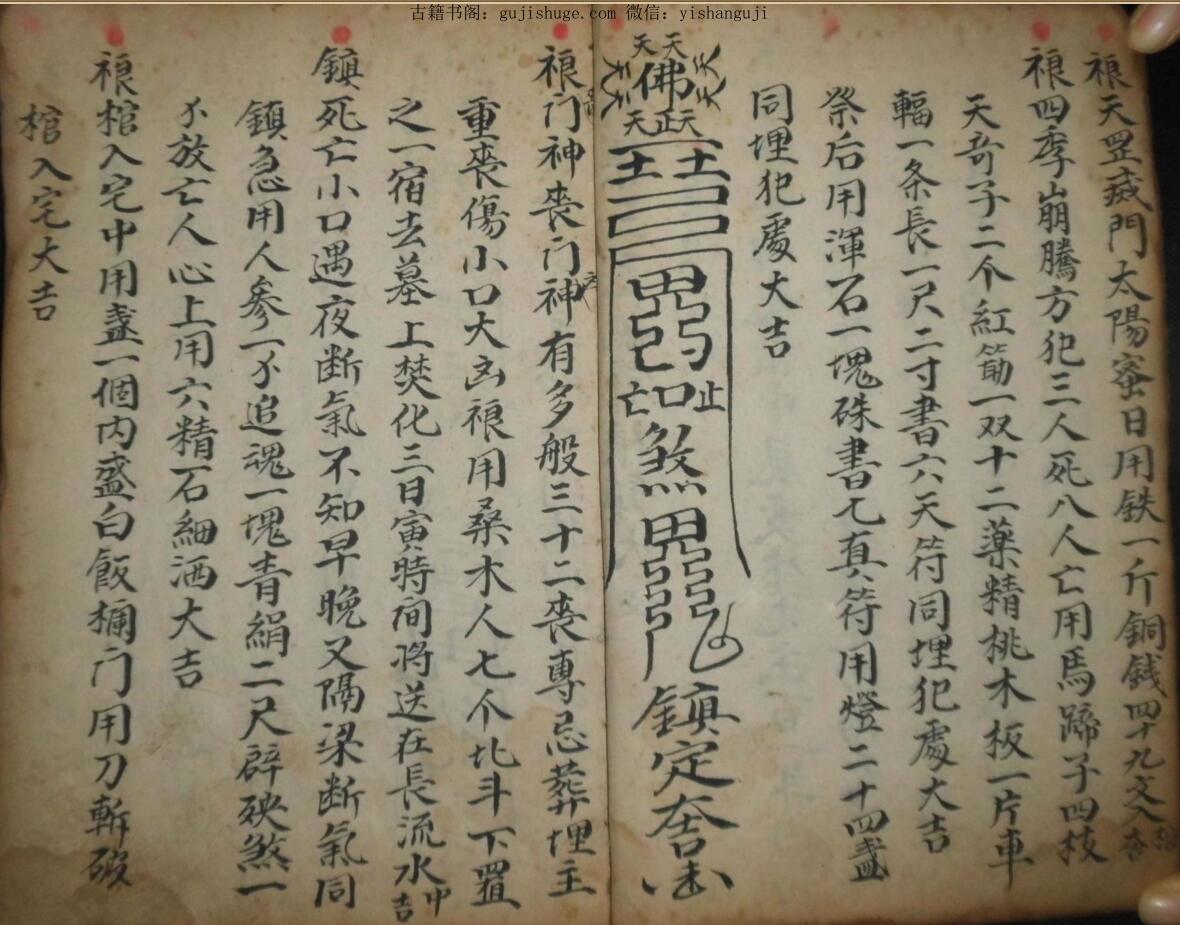 古籍书阁：gujishuge.com 微信：yishanguji
禳天罡威門太陽蜜日用铁一斤銅錢四十九文入
禳四季崩騰方犯三人死八人亡用馬蹄子四枝
天竒子二个紅筯一双十二薬精桃木板一片車
輻一条長一尺二寸書六天符同埋犯處大吉
祭后用渾石一塊硃書七真符用燈二十四盞
同埋犯處大吉
天天
佛
天正天
煞
鎮定
禳门神喪门神有多般三十二喪專忌葬埋主
重喪傷小口大凶禳用桑木人七个北斗下置
之一宿去墓上焚化三日寅時间将送在長流水中吉
鎮死亡小口遇夜断氣不知早晚又隔梁断氣同
鎮急用人參一个追魂一塊青絹二尺辟殃煞一
个放亡人心上用六精石細洒大吉
禳棺入宅中用盞一個内盛白飯门用刀斬破
棺入宅大吉